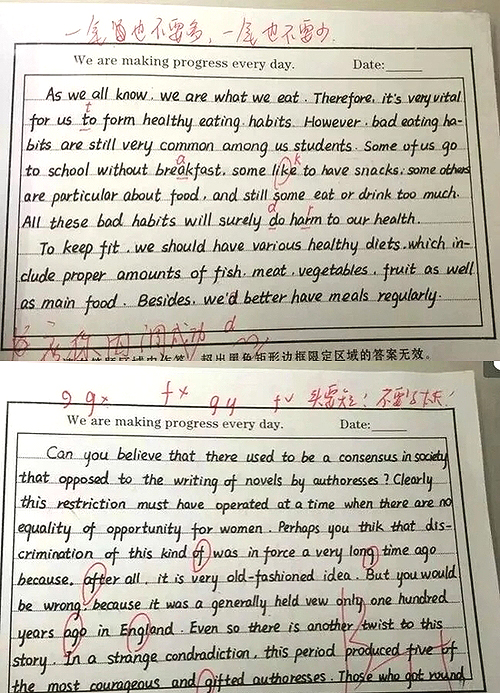 一尾留也不要多，一尾也不要少
We are making progress every day. Date:_____
As we all know, we are what we eat. Therefore, it's very vital
t
for us to form healthy eating habits. However, bad eating ha-
bits are still very common among us students. Some of us go
a k
to school without breakfast, some like to have snacks, some others
are particular about food, and still some eat or drink too much.
d r
All these bad habits will surely do harm to our health.
To keep fit, we should have various healthy diets, which in-
clude proper amounts of fish, meat, vegetables, fruit as well
as main food. Besides, we'd better have meals regularly.
d
超出黑色矩形边框限定区域的答案无效。
g gx fx gy f 头要 ! 不要 !
We are making progress every day. Date:_____
Can you believe that there used to be a consensus in society
that opposed to the writing of novels by authoresses? Clearly
this restriction must have operated at a time when there are no
equality of opportunity for women. Perhaps you thik that dis-
crimination of this kind of was in force a very long time ago
because, after all, it is very old-fashioned idea. But you would
be wrong, because it was a generally held vew only one hundred
years ago in England. Even so there is another twist to this
story. In a strange condradiction, this period produced five of
the most courageous and gifted authoresses. Those who got round